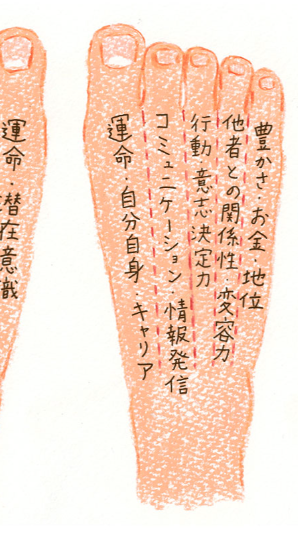 豊かさ・お金・地位
他者との関係性・変容力
行動 意志決定力
コミュニケーション・情報発信
運命・自分自身・キャリア
運命・潜在意識